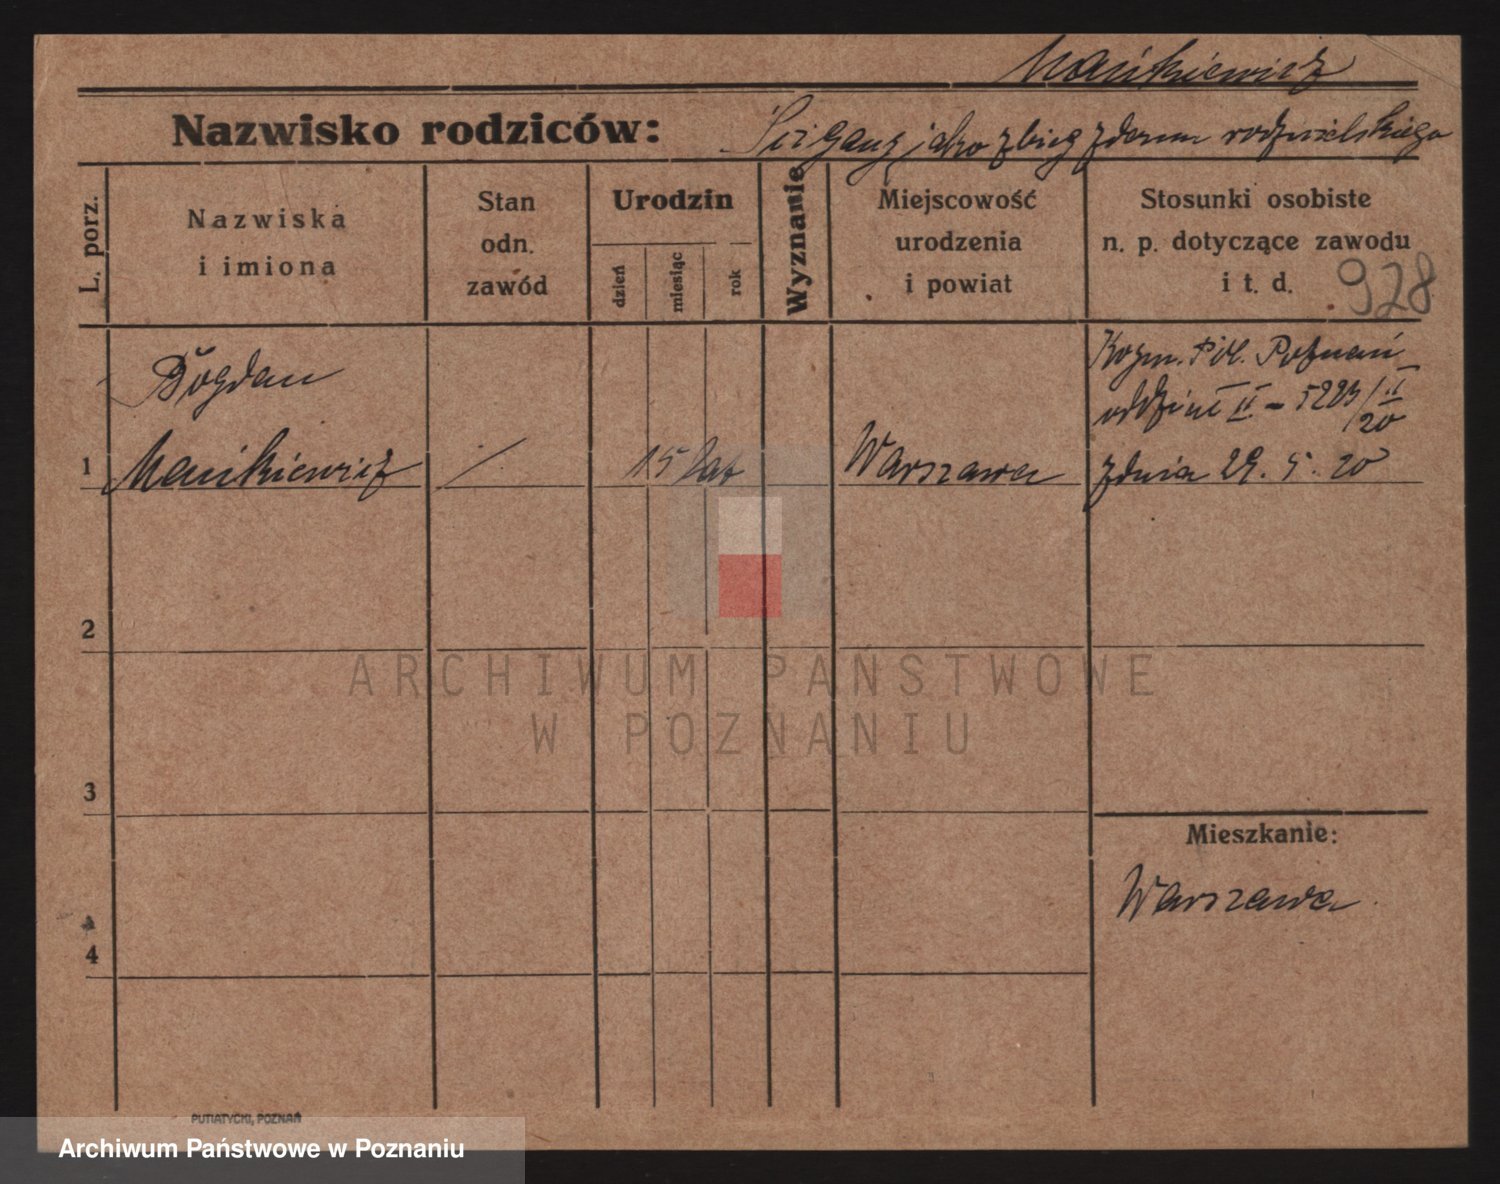 Mańkiewicz
Nazwisko rodziców: Ścigany jako zbieg z domu rodzicielskiego
L. porz.
Nazwiska
i imiona
Stan
odn.
zawód
Urodzin
dzień
miesiąc
rok
Wyznanie
Miejscowość
urodzenia
i powiat
Stosunki osobiste
n. p. dotyczące zawodu
i t. d.
928
Bogdan
1 Mańkiewicz / 15 lat Warszawa
Pol. Poznań
oddział II - 5223/II
20
z dnia 29. 5. 20
2
3
4
Mieszkanie:
Warszawa
ARCHIWUM PAŃSTWOWE
W POZNANIU
PUTIATYCKI, POZNAŃ
Archiwum Państwowe w Poznaniu